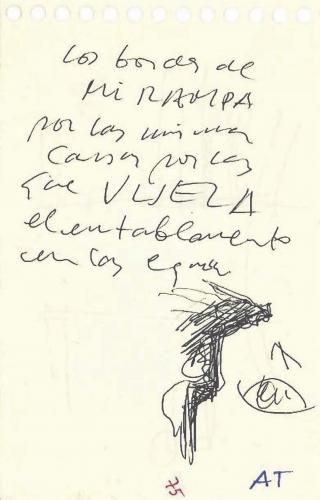 los bordes de
MI RAMPA
por las mismas
causas por las
que VUELA
el entablamento
con las
75
AT